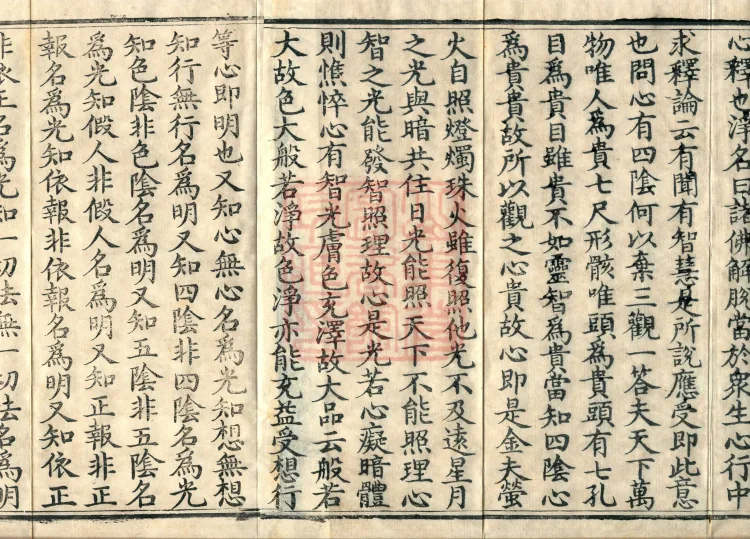 心釋也淨名曰諸佛解脫當於衆生心行中
求釋論云有聞有智慧是所說應受即此意
也問心有四陰何以棄三觀一答夫天下萬
物唯人爲貴七尺形骸唯頭爲貴頭有七孔
目爲貴目雖貴不如靈智爲貴當知四陰心
爲貴貴故所以觀之心貴故心即是金夫螢
火自照燈燭珠火雖復照他光不及遠星月
之光與暗共住日光能照天下不能照理心
智之光能發智照理故心是光若心癡暗體
則憔悴心有智光膚色充澤故大品云般若
大故色大般若淨故色淨亦能充益受想行
等心即明也又知心無心名爲光知想無想
知行無行名爲明又知四陰非四陰名爲光
知色陰非色陰名爲明又知五陰非五陰名
爲光知假人非假人名爲明又知正報非正
報名爲光知依報非依報名爲明又知依正
非依正名爲光知一切法無一切法名爲明